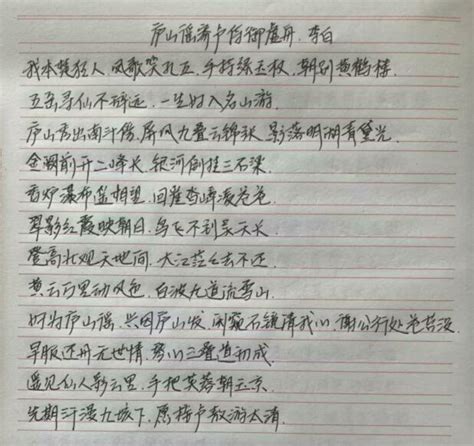 庐山谣寄卢侍御虚舟.李白
我本楚狂人,凤歌笑孔丘.手持绿玉杖,朝别黄鹤楼.
五岳寻仙不辞远,一生好入名山游.
庐山秀出南斗傍,屏风九叠云锦张,影落明湖青黛光.
金阙前开二峰长,银河倒挂三石梁.
香炉瀑布遥相望,回崖沓嶂凌苍苍.
翠影红霞映朝日,鸟飞不到吴天长.
登高壮观天地间,大江茫茫去不还.
黄云万里动风色,白波九道流雪山.
好为庐山谣,兴因庐山发.闲窥石镜清我心,谢公行处苍苔没.
早服还丹无世情,琴心三叠道初成.
遥见仙人彩云里,手把芙蓉朝玉京.
先期汗漫九垓下,愿接卢敖游太清.